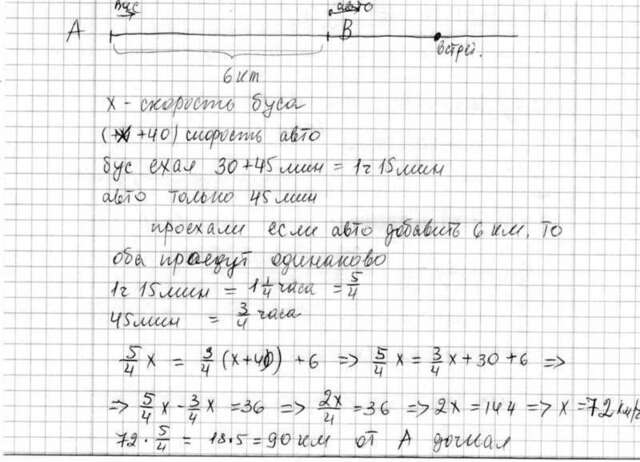 бус авто
A B встреч.
6 км
x - скорость буса
(x+40) скорость авто
бус ехал 30+45 мин = 1ч 15мин
авто только 45 мин
проехали если авто добавить 6 км, то
оба проедут одинаково
1ч 15мин = 1 1/4 часа = 5/4
45мин = 3/4 часа
5/4 x = 3/4 (x+40) + 6 => 5/4 x = 3/4 x + 30 + 6 =>
=> 5/4 x - 3/4 x = 36 => 2x/4 = 36 => 2x = 144 => x = 72 км/ч
72 · 5/4 = 18·5 = 90 км от A догнал